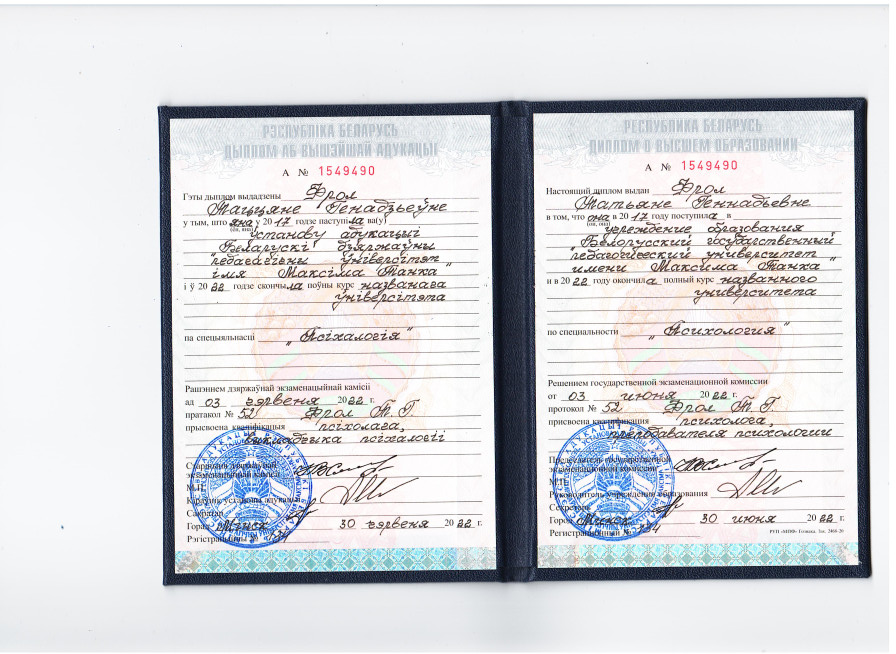 РЭСПУБЛІКА БЕЛАРУСЬ
ДЫПЛОМ АБ ВЫШЭЙШАЙ АДУКАЦЫІ
А № 1549490
Гэты дыплом выдадзены Фрол
Таццяне Генадзьеўне
у тым, што яна у 2017 годзе паступіла ва(у)
(ён, яна)
Установу адукацыі
"Беларускі дзяржаўны
педагагічны ўніверсітэт
імя Максіма Танка"
і ў 2022 годзе скончыла поўны курс названага
ўніверсітэта
па спецыяльнасці "Псіхалогія"
Рашэннем дзяржаўнай экзаменацыйнай камісіі
ад 03 чэрвеня 2022 г.
пратакол № 52 Фрол Т. Г.
прысвоена кваліфікацыя псіхолага,
выкладчыка псіхалогіі
Старшыня дзяржаўнай
экзаменацыйнай камісіі
М.П.
Кіраўнік установы адукацыі
Сакратар
Горад Мінск 30 чэрвеня 2022 г.
Рэгістрацыйны №
РЕСПУБЛИКА БЕЛАРУСЬ
ДИПЛОМ О ВЫСШЕМ ОБРАЗОВАНИИ
А № 1549490
Настоящий диплом выдан Фрол
Татьяне Геннадьевне
в том, что она в 2017 году поступила в
(он, она)
учреждение образования
"Белорусский государственный
педагогический университет
имени Максима Танка"
и в 2022 году окончила полный курс названного
университета
по специальности "Психология"
Решением государственной экзаменационной комиссии
от 03 июня 2022 г.
протокол № 52 Фрол Т. Г.
присвоена квалификация психолога,
преподавателя психологии
Председатель государственной
экзаменационной комиссии
М.П.
Руководитель учреждения образования
Секретарь
Город Минск 30 июня 2022 г.
Регистрационный №